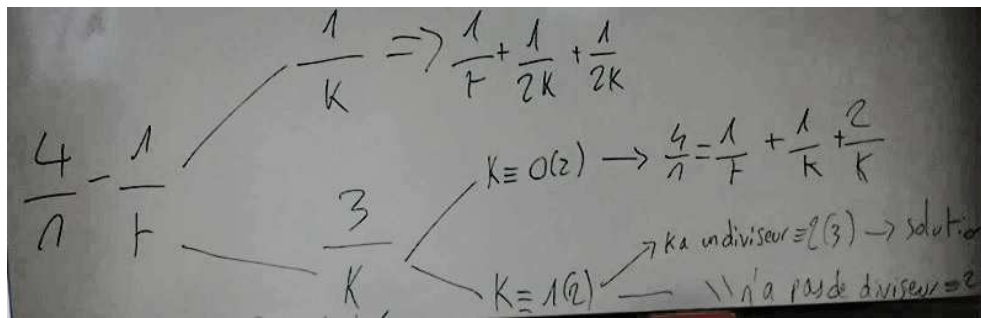 4/n - 1/t
1/K => 1/t + 1/2K + 1/2K
3/K
K ≡ 0(2) → 4/n = 1/t + 1/K + 2/K
K ≡ 1(2)
→ K a un diviseur ≡ 2(3) → solution
— \\ n'a pas de diviseur ≡ 2